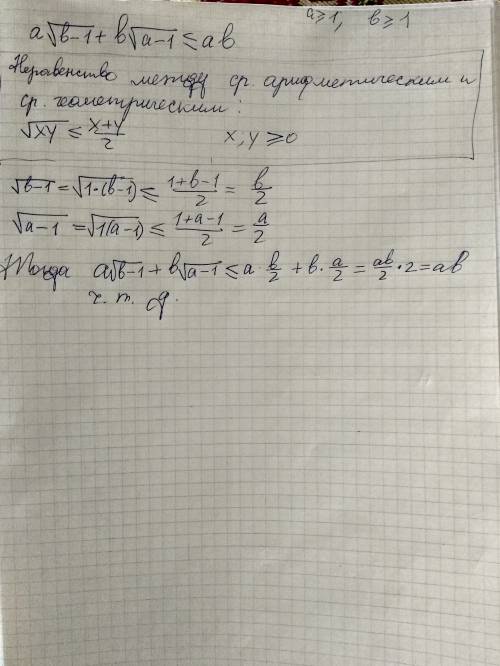 a√(b-1) + b√(a-1) ≤ ab   a≥1, b≥1
Неравенство между ср. арифметическим и
ср. геометрическим:
√(xy) ≤ (x+y)/2   x; y ≥ 0
√(b-1) = √(1·(b-1)) ≤ (1+b-1)/2 = b/2
√(a-1) = √(1(a-1)) ≤ (1+a-1)/2 = a/2
Тогда a√(b-1) + b√(a-1) ≤ a·b/2 + b·a/2 = ab/2·2 = ab
ч. т. д.